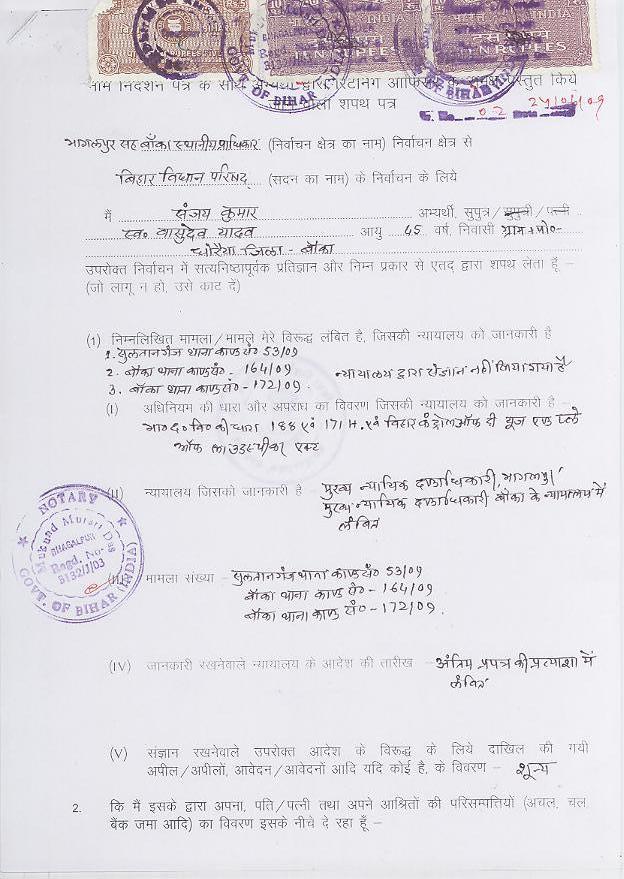 INDIA
INDIA
भारत INDIA
दस रुपये
TEN RUPEES
GOVT. OF BIHAR
नाम निर्देशन पत्र के साथ अभ्यर्थी द्वारा रिटर्निंग ऑफिसर के समक्ष प्रस्तुत किये
जाने वाला शपथ पत्र
02 24/06/09
भागलपुर सह बाँका स्थानीय प्राधिकार (निर्वाचन क्षेत्र का नाम) निर्वाचन क्षेत्र से
बिहार विधान परिषद् (सदन का नाम) के निर्वाचन के लिये
मैं संजय कुमार अभ्यर्थी, सुपुत्र/सुपुत्री/पत्नी
स्व० वासुदेव यादव आयु 45 वर्ष, निवासी ग्राम+पो०-
धोरैया जिला - बाँका
उपरोक्त निर्वाचन में सत्यनिष्ठापूर्वक प्रतिज्ञान और निम्न प्रकार से एतद् द्वारा शपथ लेता हूँ –
(जो लागू न हो, उसे काट दें)
(1) निम्नलिखित मामला/मामले मेरे विरूद्ध लंबित है, जिसकी न्यायालय को जानकारी है
1. सुलतानगंज थाना काण्ड सं० 53/09
2. बाँका थाना काण्ड सं०- 164/09 न्यायालय द्वारा संज्ञान नहीं लिया गया है
3. बाँका थाना काण्ड सं०-172/09.
(I) अधिनियम की धारा और अपराध का विवरण जिसकी न्यायालय को जानकारी है –
भा० द० वि० की धारा 188 एवं 171 H. एवं बिहार कंट्रोल ऑफ दी यूज एण्ड प्ले
ऑफ लाउडस्पीकर एक्ट
(II) न्यायालय जिसको जानकारी है – मुख्य न्यायिक दण्डाधिकारी, भागलपुर
मुख्य न्यायिक दण्डाधिकारी बाँका के न्यायालय में
लंबित
NOTARY
Mukund Murari Das
BHAGALPUR
Regd. No-
5132/J/03
GOVT. OF BIHAR (INDIA)
(III) मामला संख्या – सुलतानगंज थाना काण्ड सं० 53/09
बाँका थाना काण्ड सं० - 164/09
बाँका थाना काण्ड सं० - 172/09.
(IV) जानकारी रखनेवाले न्यायालय के आदेश की तारीख – अंतिम प्रपत्र की प्रत्याशा में
लंबित
(V) संज्ञान रखनेवाले उपरोक्त आदेश के विरूद्ध के लिये दाखिल की गयी
अपील/अपीलों, आवेदन/आवेदनों आदि यदि कोई है, के विवरण – शून्य
2. कि मैं इसके द्वारा अपना, पति/पत्नी तथा अपने आश्रितों की परिसम्पत्तियों (अचल, चल
बैंक जमा आदि) का विवरण इसके नीचे दे रहा हूँ –